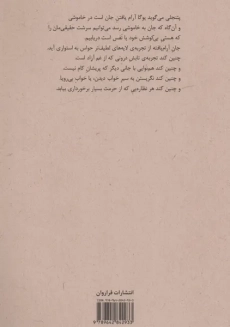 پتنجلی می‌گوید یوگا آرام یافتن جان است در خاموشی
و آن‌گاه که جان به خاموشی رسد می‌توانیم سرشت حقیقی‌مان را
که هستی بی‌کوشش خود با نفس است دریابیم.
جان آرام‌یافته از تجربه‌ی لایه‌های لطیف‌تر حواس به استواری آید.
و چنین کند تجربه‌ی تابش درونی که از غم آزاد است
و چنین کند هم‌نوایی با جانی دیگر که پریشان کام نیست.
و چنین کند نگریستن به سیر خواب دیدن، یا خواب بی‌رویا
و چنین کند هر نظاره‌یی که از حرمت بسیار برخورداری بیابد.
انتشارات فراروان